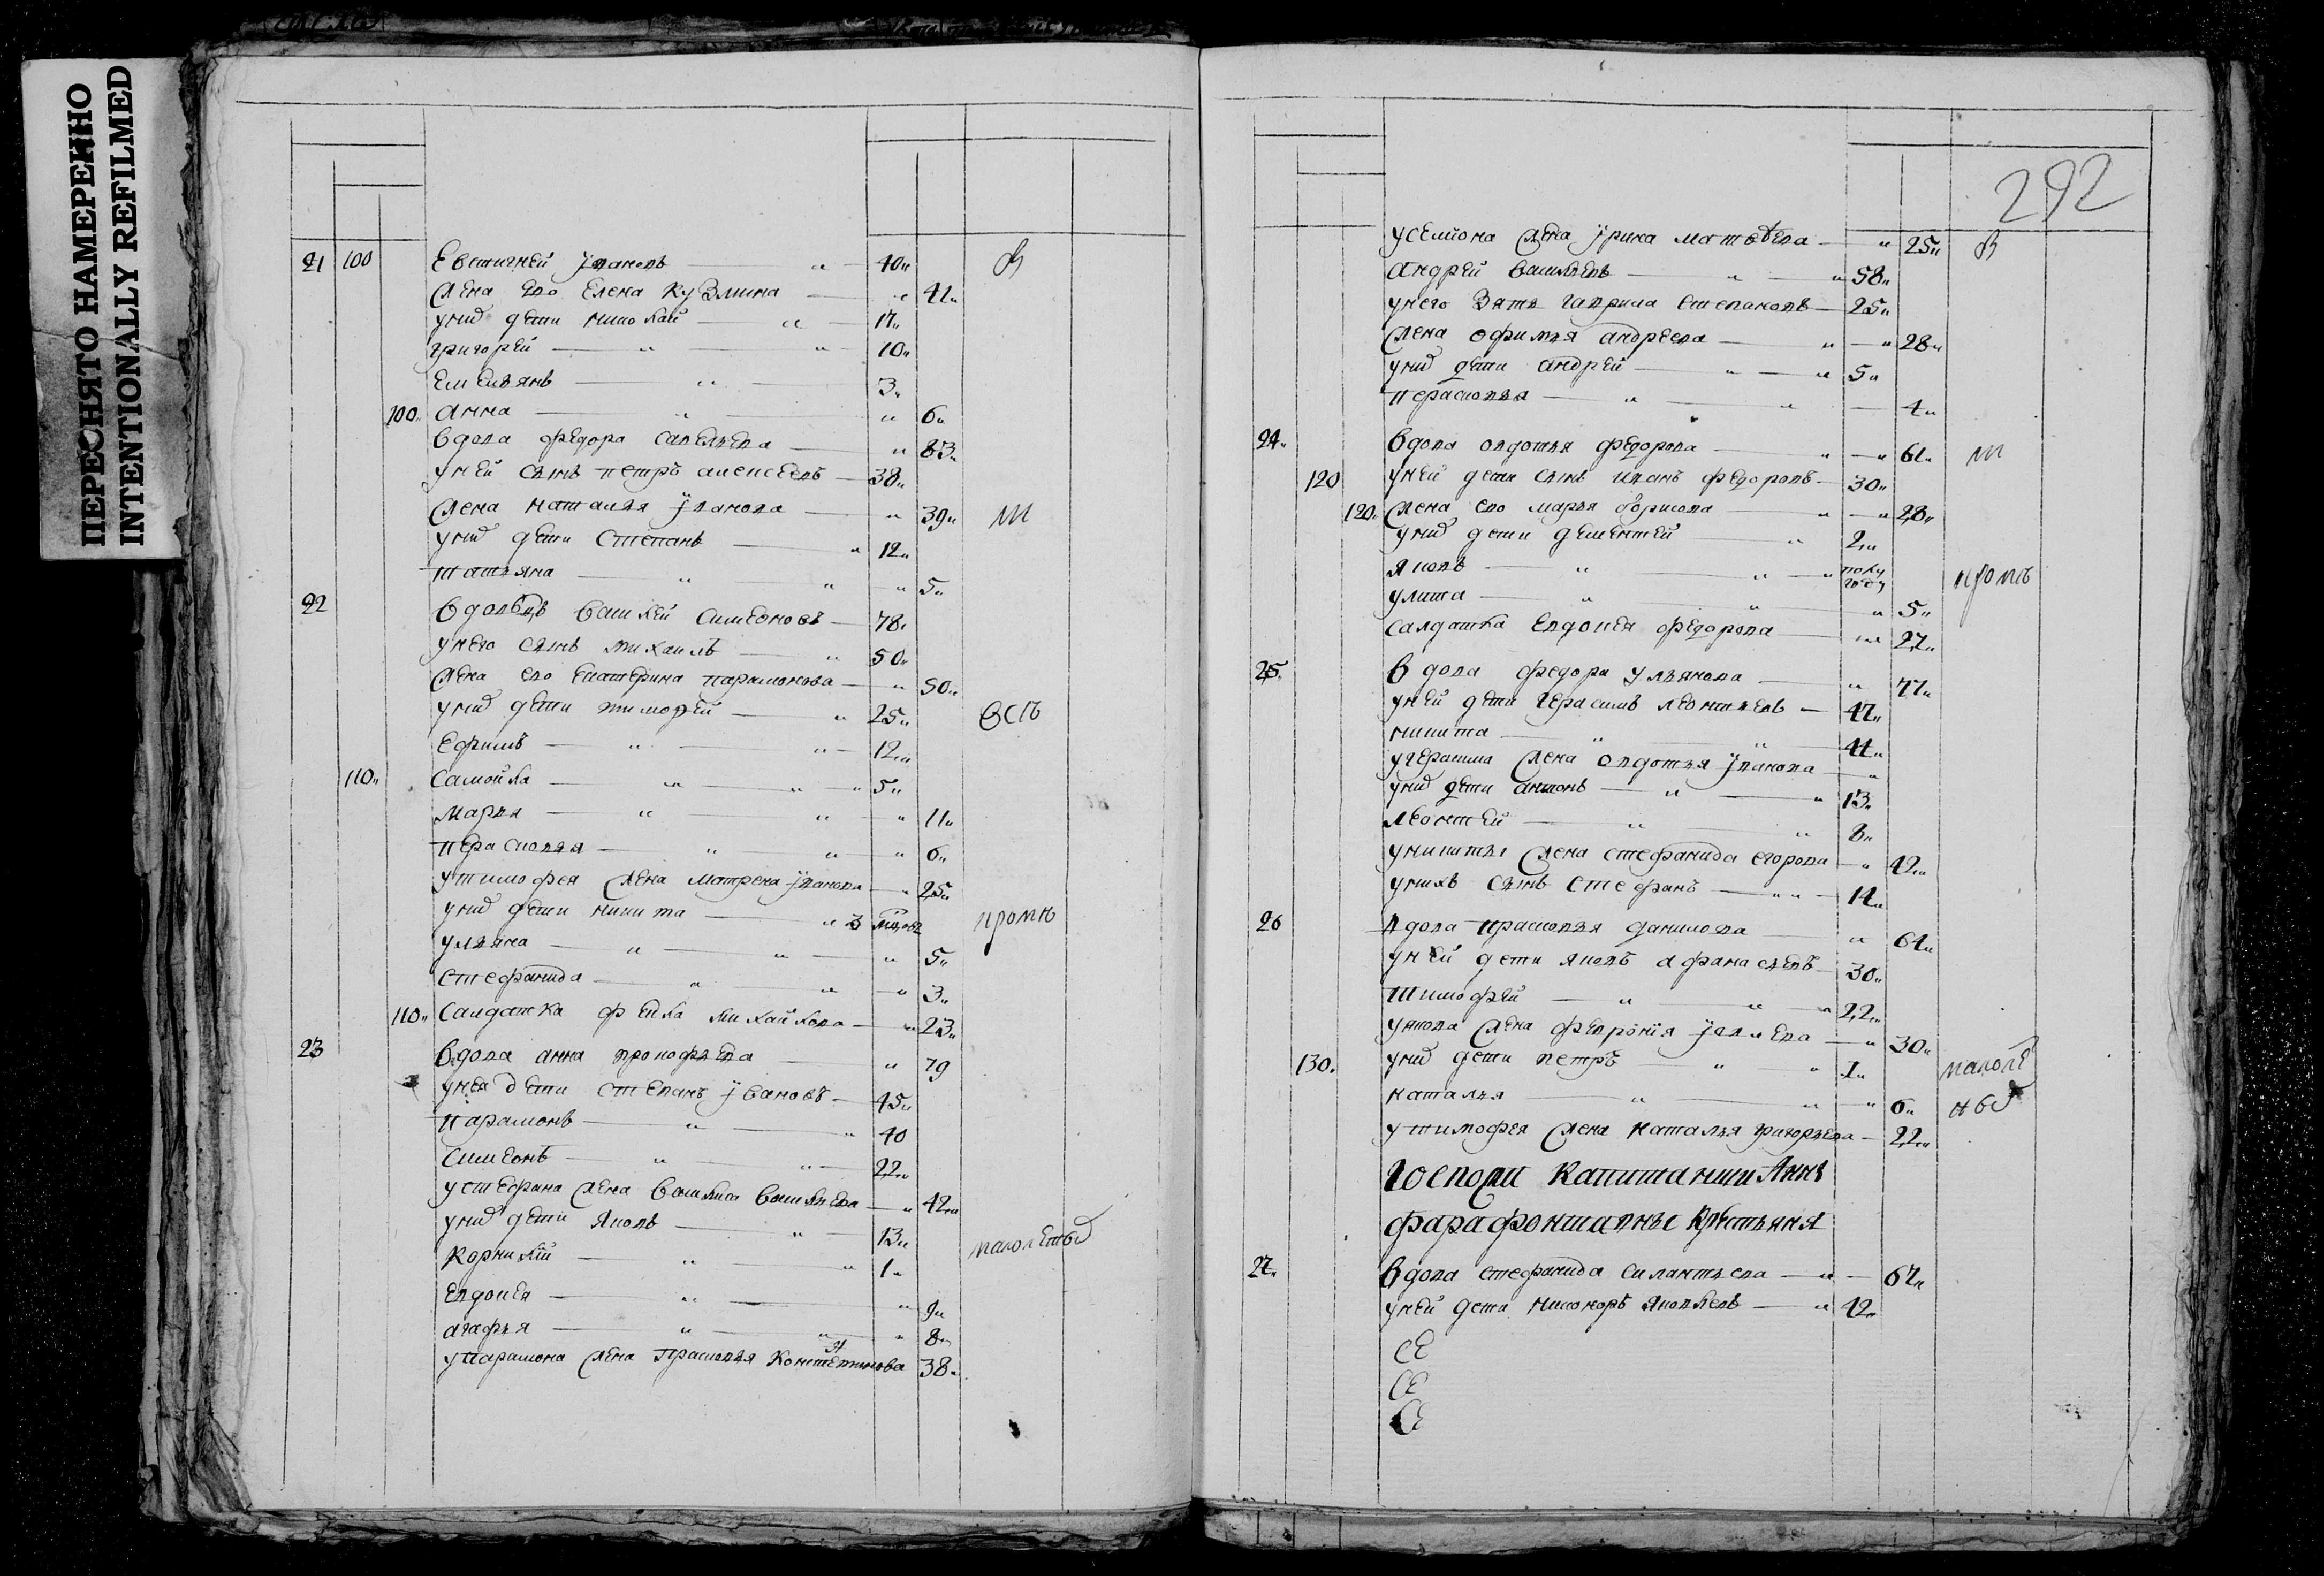 ПЕРЕСНЯТО НАМЕРЕННО
INTENTIONALLY REFILMED
21 100 Евтигней Iвановъ " 40 В
жена ево Елена Кузмина " 41
уних дети Николай " 17
григорей " " 10
Емельянъ " 3
100 Анна " " 6
вдова федора савельева " 83
уней сынъ петръ алексеевъ 38
жена наталья Iванова " 39 ш
уних дети Степанъ " 12
татьяна " " " 5
22 вдовецъ василей симеоновъ 78
унего сынъ михаилъ " 50
жена ево Екатерина парамонова " 50
уних дети тимофей " 25 всь
Ефимъ " " 12
110 самойла " " " 5
марья " " " 11
перасковья " " " 6
утимофея жена матрена Iванова " 25
уних дети никита " 3 мцовъ промъ
ульяна " " " 5
стефанида " " " 3
110 салдатка фекла михайлова " 23
23 вдова анна прокофьева " 79
унея дети степанъ Iвановъ 45
парамонъ " " 40
симеонъ " " 22
устефана жена василиса васильева " 42
уних дети яковъ " 13
корнилей " " 1 малолетных
евдокея " " 9
агафья " " " 8
упарамона жена прасковья константинова 38
292
усемиона жена Iрина матвѣева " 25 В
андрей васильевъ " " 58
унего зять гаврила степановъ 25
жена офимья андреева " " 28
уних дети андрей " " 5
перасковья " " 4
24 вдова овдотья федорова " " 61 ш
120 уней дети сынъ иванъ федоровъ 30
120 жена ево марья борисова " " 28
уних дети дементей " 2
яковъ " " " полугоду промъ
улита " " " 5
салдатка евдокея федорова " 27
25 вдова федора ульянова " 77
уней дети герасимъ леонтьевъ 47
никита " " 41
угерасима жена овдотья Iванова "
уних дети антонъ " " 13
леонтей " " 8
уникиты жена стефанида егорова " 42
унихъ сынъ стефанъ " " 14
26 вдова прасковья данилова " 61
уней дети яковъ афанасьевъ 30
тимофей " " " 22
уякова жена феврония " 30
130 уних дети петръ " " 1 малоле
наталья " " " 6 ных
утимофея жена наталья григорьева 22
госпожи капитанши Анны
фарафонтавны крестьяня
27 вдова стефанида силантьева " 67
уней дети никоноръ яковлевъ " 42